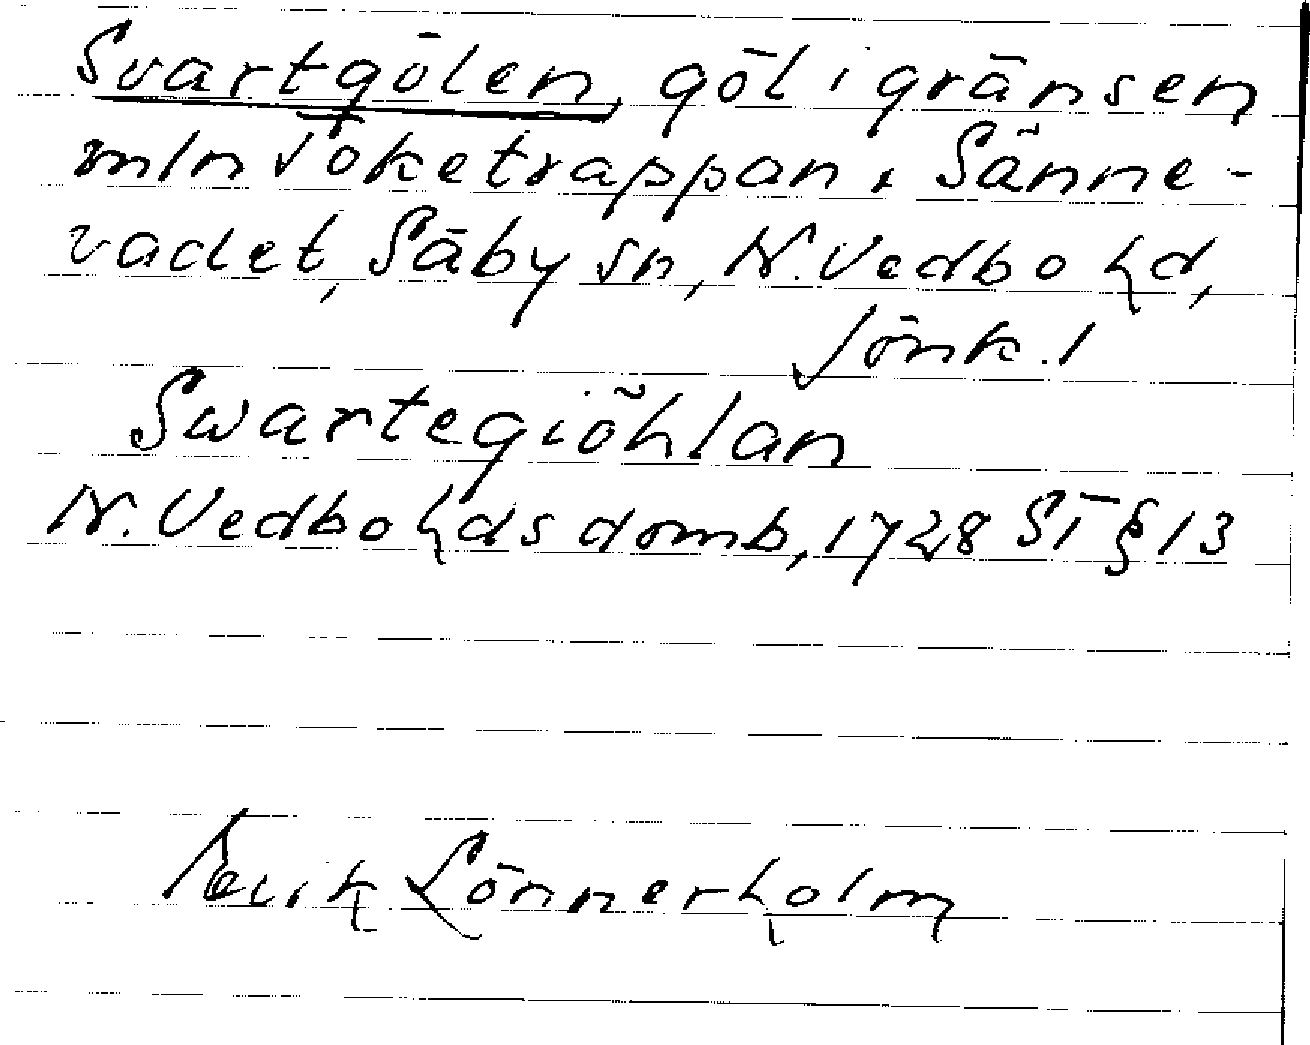 Svartgölen, göl i gränsen
mln Töketrappan, Sänne-
vadet, Säby sn, N. Vedbo hd,
Jönk. l
Swartegiöhlan
N. Vedbo hds domb, 1728 ST § 13
Lönnerholm